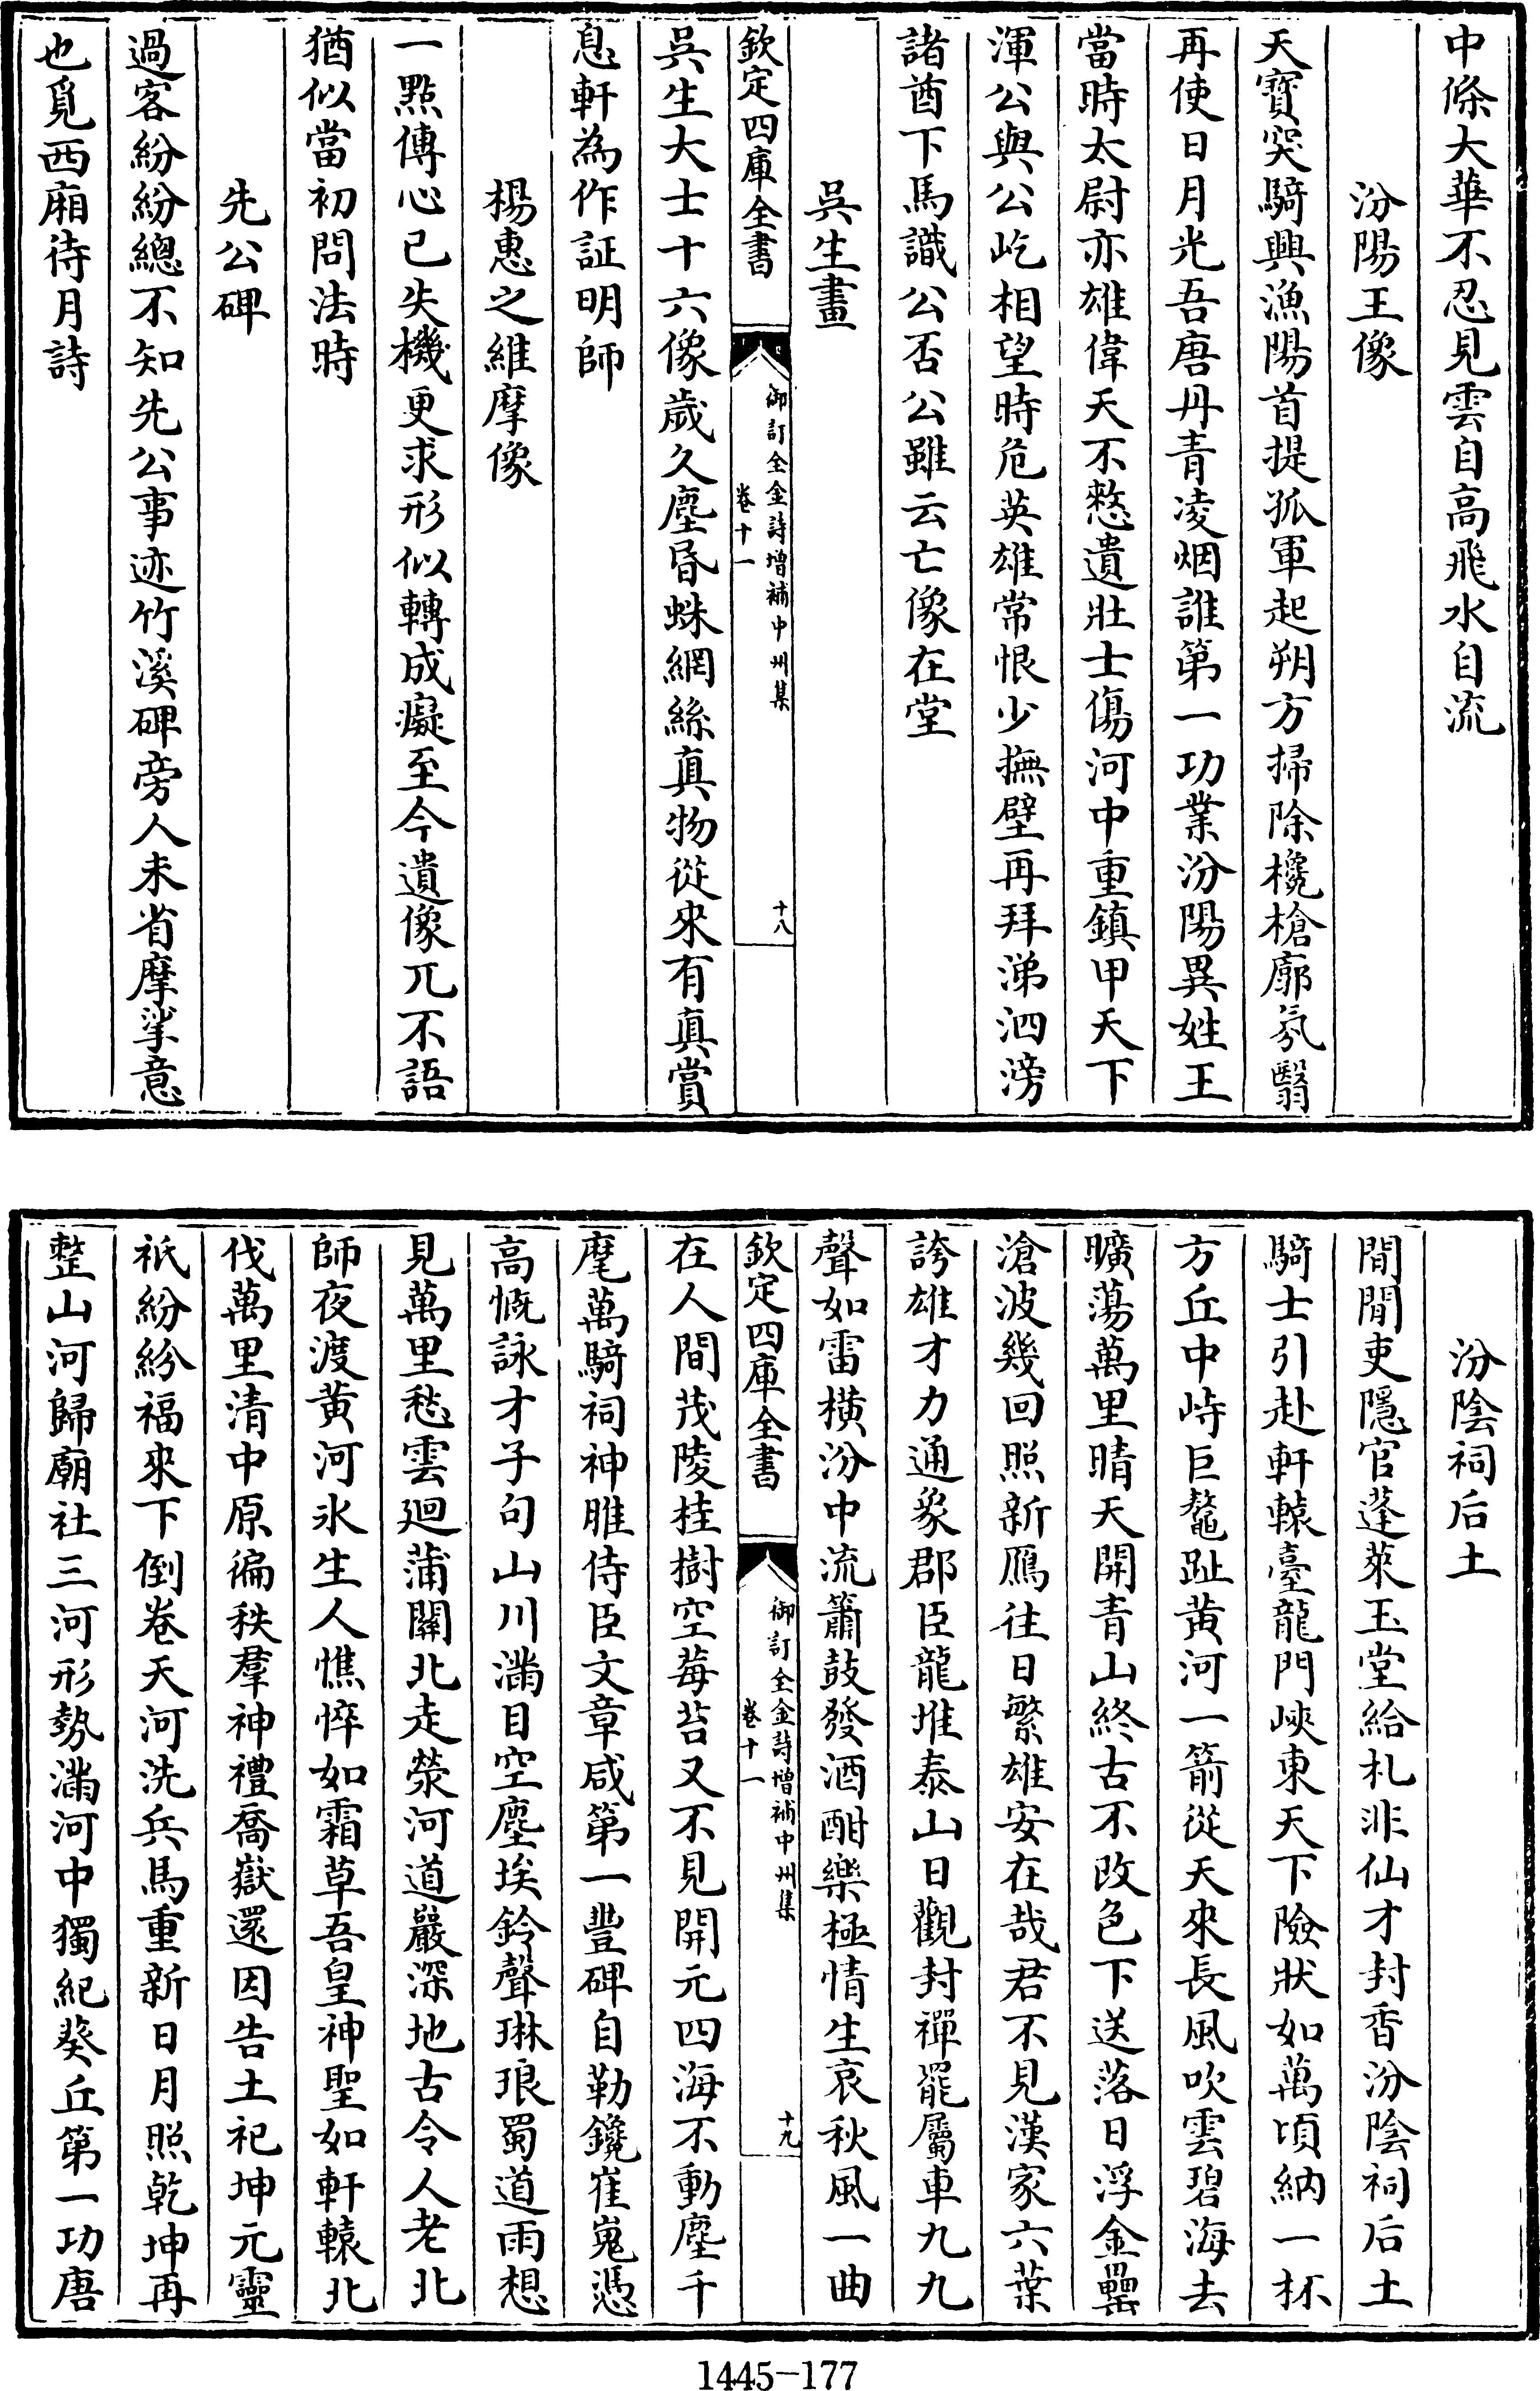 中條大華不忍見雲自高飛水自流
汾陽王像
天寳突騎興漁陽首提孤軍起朔方掃除欃槍廓氛翳
再使日月光吾唐丹青凌烟誰第一功業汾陽異姓王
當時太尉亦雄偉天不憗遺壯士傷河中重鎮甲天下
渾公與公屹相望時危英雄常恨少撫壁再拜涕泗滂
諸酋下馬識公否公雖云亡像在堂
吳生畫
欽定四庫全書
御訂全金詩增補中州集
卷十一
十八
吳生大士十六像歲久塵昏蛛網絲真物從來有真賞
息軒為作証明師
楊惠之維摩像
一點傳心已失機更求形似轉成癡至今遺像兀不語
猶似當初問法時
先公碑
過客紛紛總不知先公事迹竹溪碑旁人未省摩挲意
也覓西廂待月詩
汾陰祠后土
閒閒吏隱官蓬萊玉堂給札非仙才封香汾陰祠后土
騎士引赴軒轅臺龍門峽東天下險狀如萬頃納一杯
方丘中峙巨鼇趾黄河一箭從天來長風吹雲碧海去
曠蕩萬里晴天開青山終古不改色下送落日浮金罍
滄波幾回照新鴈往日繁雄安在哉君不見漢家六葉
誇雄才力通象郡臣龍堆泰山日觀封禪罷屬車九九
聲如雷横汾中流簫鼓發酒酣樂極情生哀秋風一曲
欽定四庫全書
御訂全金詩增補中州集
卷十一
十九
在人間茂陵桂樹空莓苔又不見開元四海不動塵千
麾萬騎祠神脽侍臣文章咸第一豐碑自勒鑱崔嵬憑
高慨詠才子句山川滿目空塵埃鈴聲琳琅蜀道雨想
見萬里愁雲廻蒲關北走滎河道嚴深地古令人老北
師夜渡黄河氷生人憔悴如霜草吾皇神聖如軒轅北
伐萬里清中原徧秩羣神禮喬嶽還因告土祀坤元靈
祇紛紛福來下倒卷天河洗兵馬重新日月照乾坤再
整山河歸廟社三河形勢滿河中獨紀葵丘第一功唐
1445-177